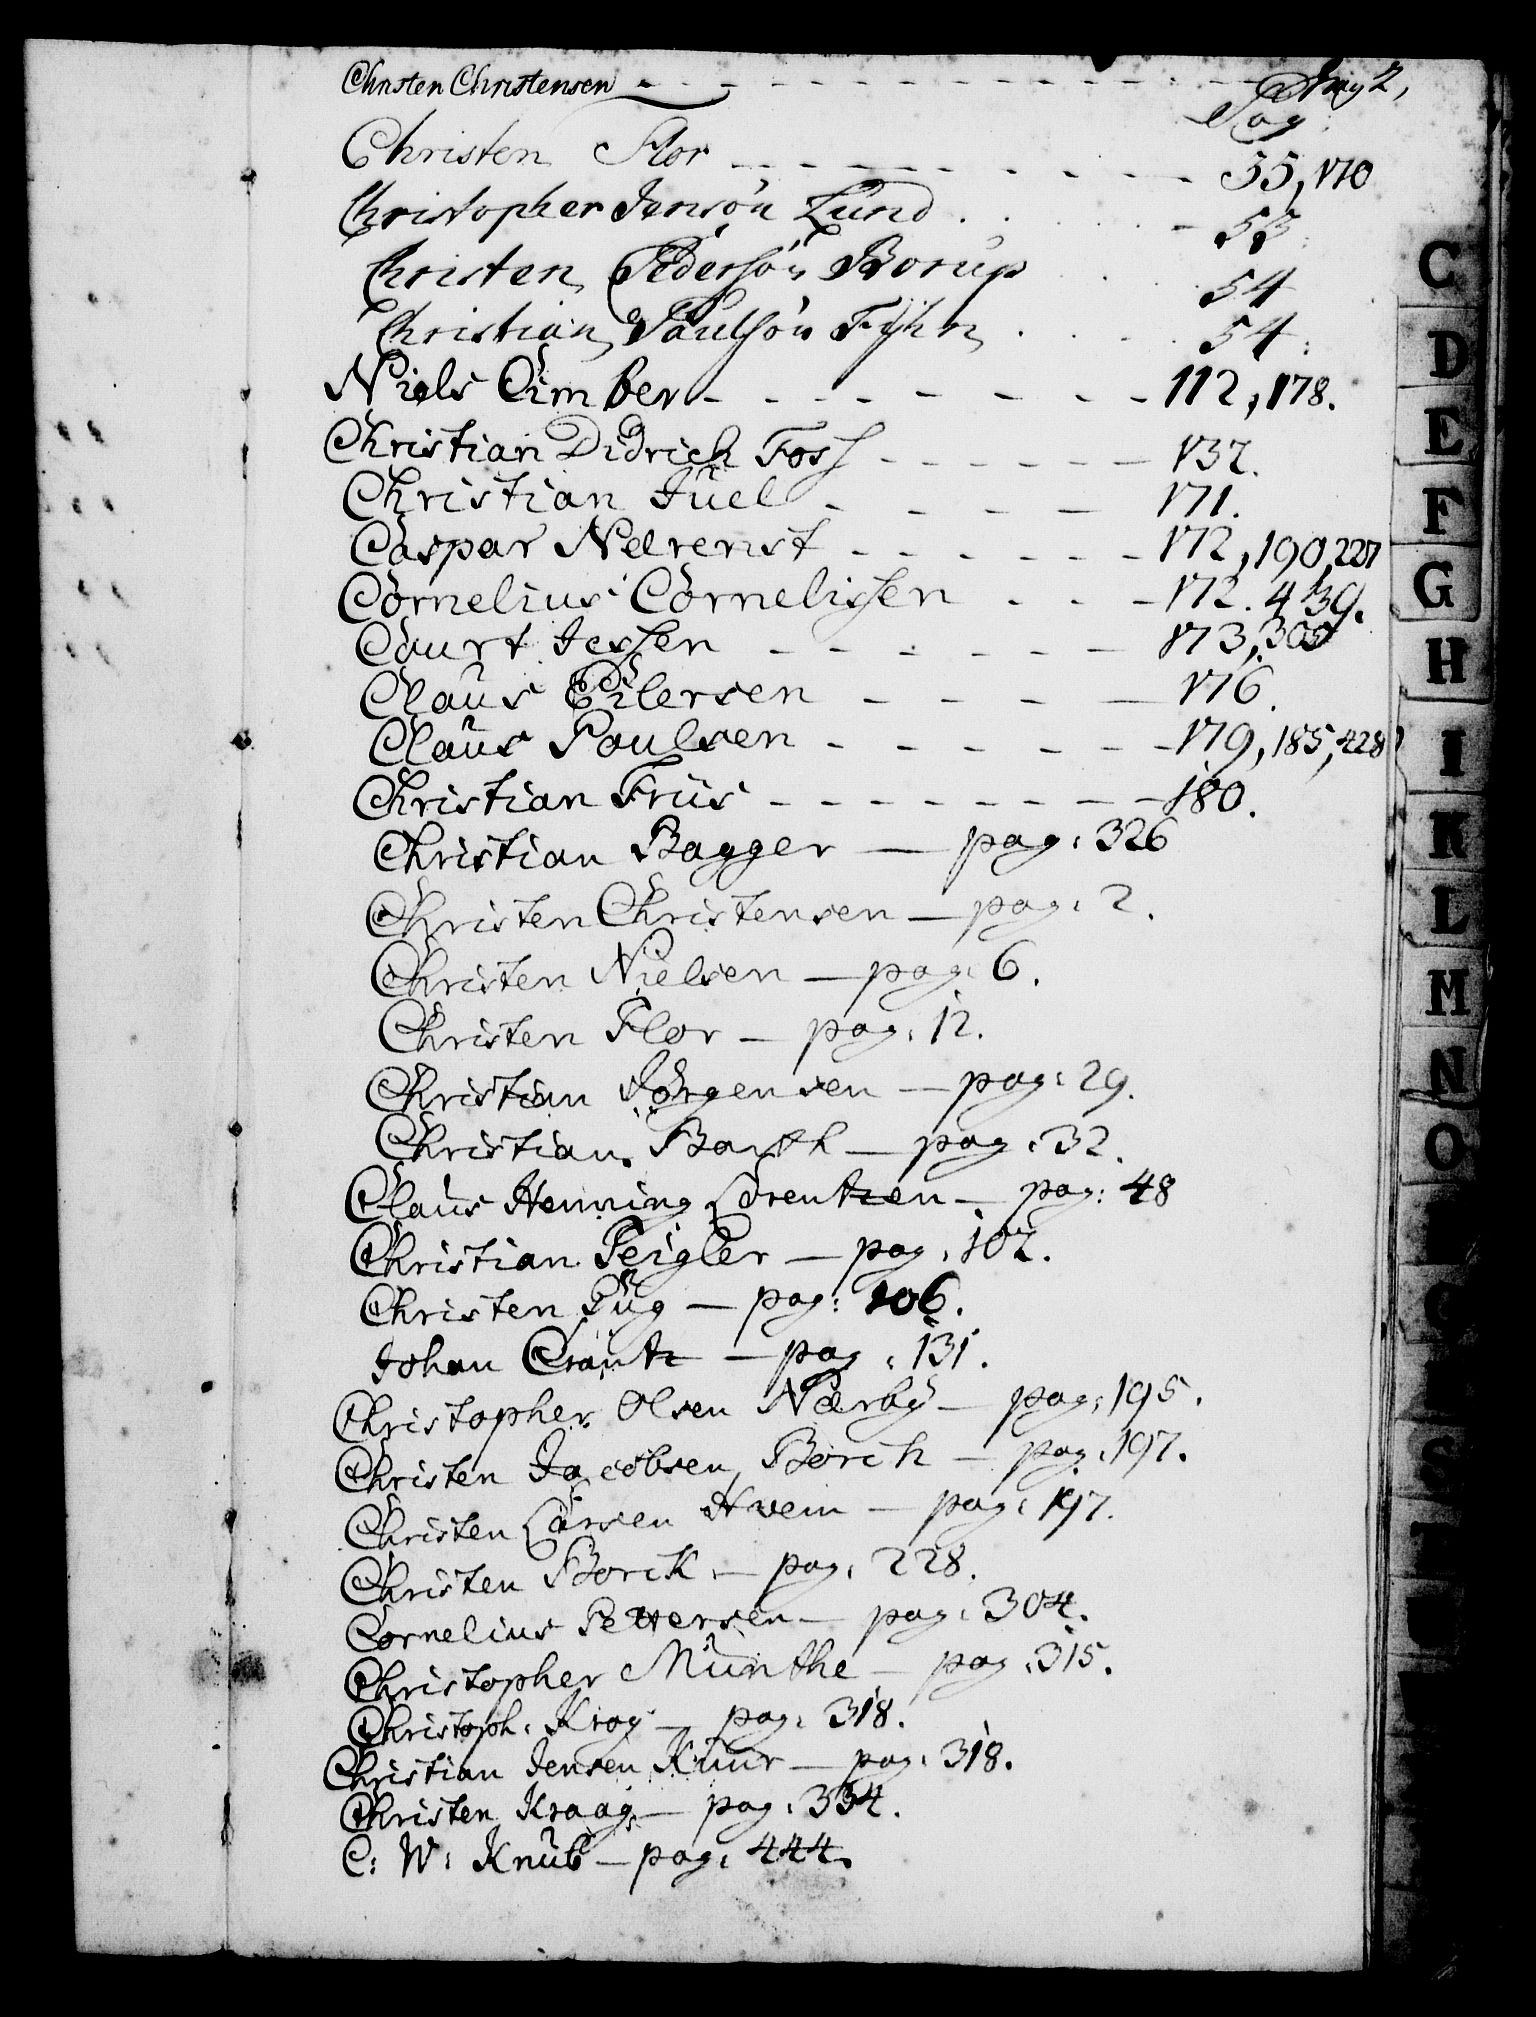 Christen Christensen - - - - - - - - pag 2,
Pag:
Christen Flor - - - - - - - - 55, 170
Christopher Jensøn Lund . . . - 53:
Christen Pedersøn Borup . . . 54
Christian Paulsøn Fÿhn . . . . 54:
Niels Cimber - - - - - - - 112, 178.
Christian Didrich Foss - - - - - - 137.
Christian Jüel - - - - - 171.
Caspar Neerenst - - - - - - 172, 190, 227
Cornelius Cornelissen - - - 172. 439.
Court Jessen - - - - - - 173, 305
Claus Eilersen - - - - 176.
Claus Poulsen - - - - - - 179, 185, 428
Christian Friis - - - - - - - - 180.
Christian Bagger — pag: 326
Christen Christensen — pag: 2.
Christen Nielsen — pag: 6.
Christen Flor — pag: 12.
Christian Jörgensen — pag: 29.
Christian Barth — pag: 32.
Claus Henning Lorentzen — pag: 48
Christian Peigler — pag: 102.
Christen Püg — pag: 106.
Johan Crantz — pag: 131.
Christopher Olsen Nærbÿ — pag: 195.
Christen Jacobsen Borch — pag: 197.
Christen Larsen Hvem — pag: 197.
Christen Borch — pag: 228.
Cornelius Pettersen — pag: 304.
Christopher Munthe — pag: 315.
Christoph: Krag — pag: 318.
Christian Jensen Knur — pag: 318.
Christen Kraag — pag: 334.
C: W: Knub — pag: 444.
C
D
E
F
G
H
I
K
L
M
N
O
S